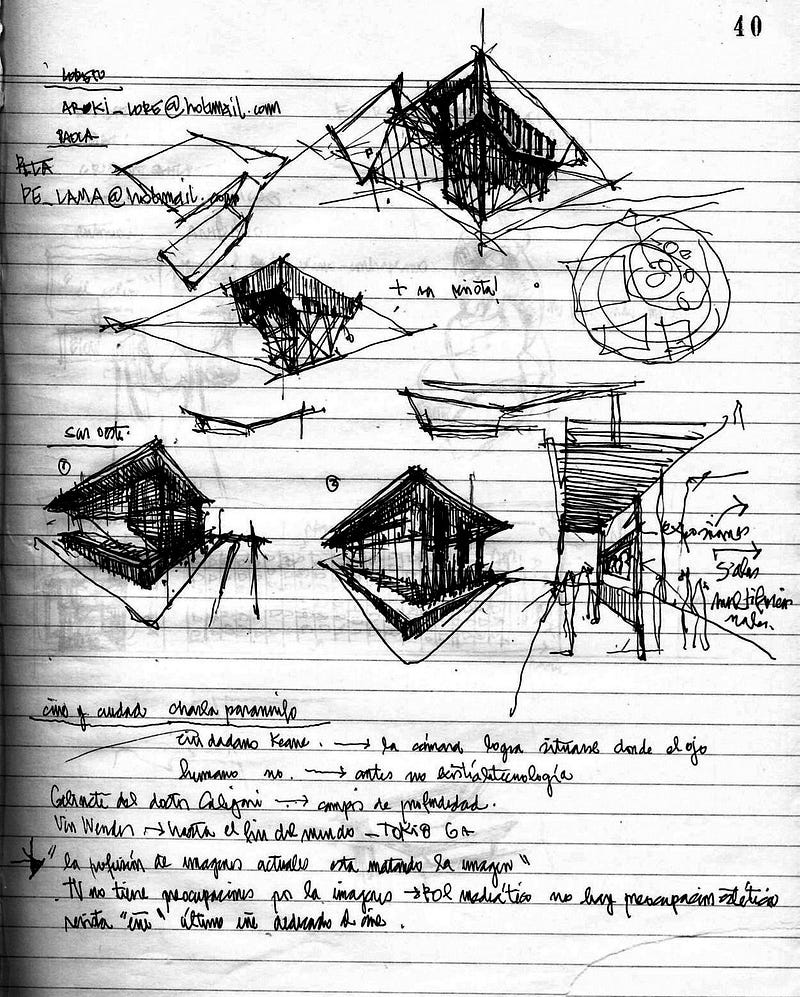 40
LORETO
AROKI_LORE@hotmail.com
PAOLA
PE_LAMA@hotmail.com
+ na pinota!
San
1
2
exposiciones
Salas
multifuncio
nales.
cine y ciudad charla paraninfo
Ciudadano Keane. → la cámara logra situarse donde el ojo
humano no. → antes no existía la tecnología
Gabinete del doctor Caligari → campos de profundidad.
Vin Wender → hasta el fin del mundo - TOKIO GA
"la profusión de imagenes actuales esta matando la imagen"
TV no tiene preocupaciones por la imagenes → ROL mediático no hay preocupacion estética
revista "eñe" último eñe dedicado al cine.